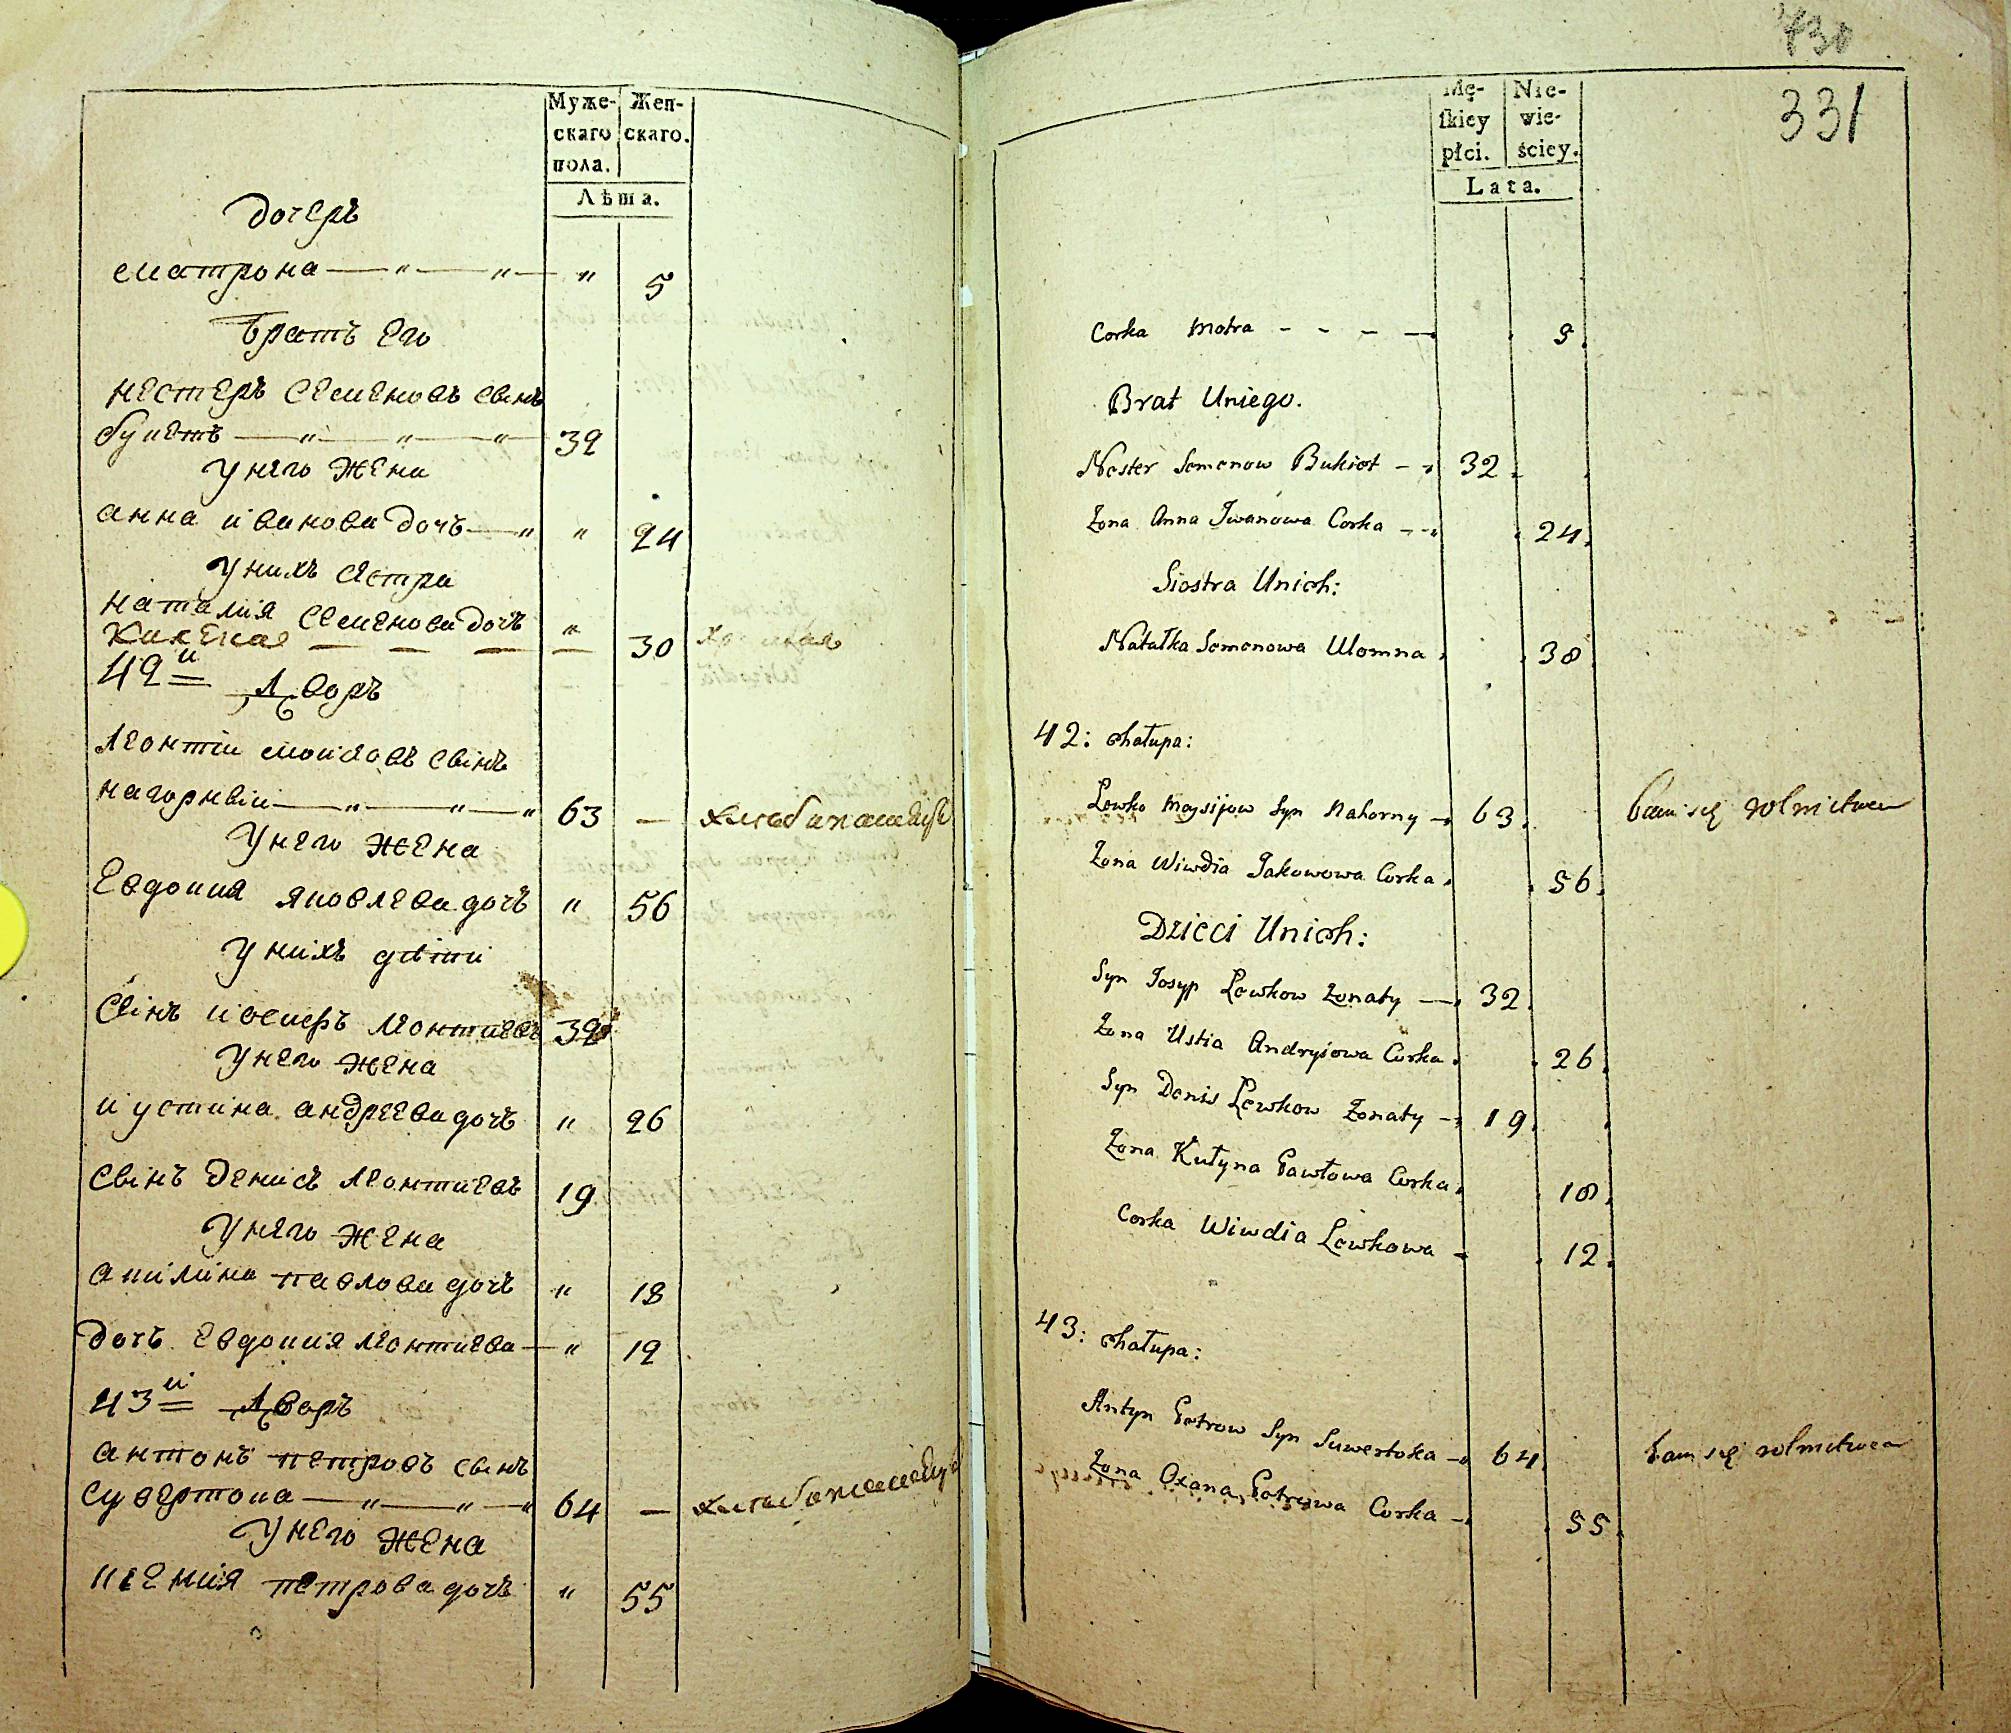 Муже-
скаго
пола.
Жен-
скаго.
Лѣта.
дочерь
матрона — " — " — " 5
братъ его
нестеръ семеновъ сынъ
букетъ — " — " — " 32
у него жена
анна иванова дочь — " " 24
у нихъ сестра
наталия семенова дочь " 30
42й дворъ
леонтiи моисевъ сынъ
нагорныи — " — " — " 63 — хлебопашецъ
у него жена
евдокия яковлева дочь " 56
у нихъ дѣти
сынъ иосифъ леонтиевъ 32
у него жена
иустина андреева дочь " 26
сынъ денисъ леонтиевъ 19
у него жена
акилина павлова дочь " 18
дочь евдокия леонтиева — " 12
43й дворъ
антонъ петровъ сынъ
сувертока — " — " — " 64 — хлебопашецъ
у него жена
ксения петрова дочь " 55
331
Mę-
skiey
płci.
Nie-
wie-
ściey.
Lata.
Corka Motra - - - — 5.
Brat Uniego.
Nester Semenow Bukiet - 32.
Zona Anna Iwanowa Corka - - 24.
Siostra Unich:
Natałka Semenowa Ułomna. 30
42: Chałupa:
Lewko Moysijow Syn Nahorny — 63. bawi się rolnictwem
Zona Wiwdia Jakowowa Corka. 56.
Dzieci Unich:
Syn Josyp Lewkow Zonaty — 32.
Zona Ustia Andryiowa Corka. 26.
Syn Denis Lewkow Zonaty — 19.
Zona Kułyna Pawłowa Corka. 18.
Corka Wiwdia Lewkowa - 12.
43: Chałupa:
Antyn Petrow Syn Suwertoka — 64. bawi się rolnictwem
Zona Oxana Petrowa Corka — 55.